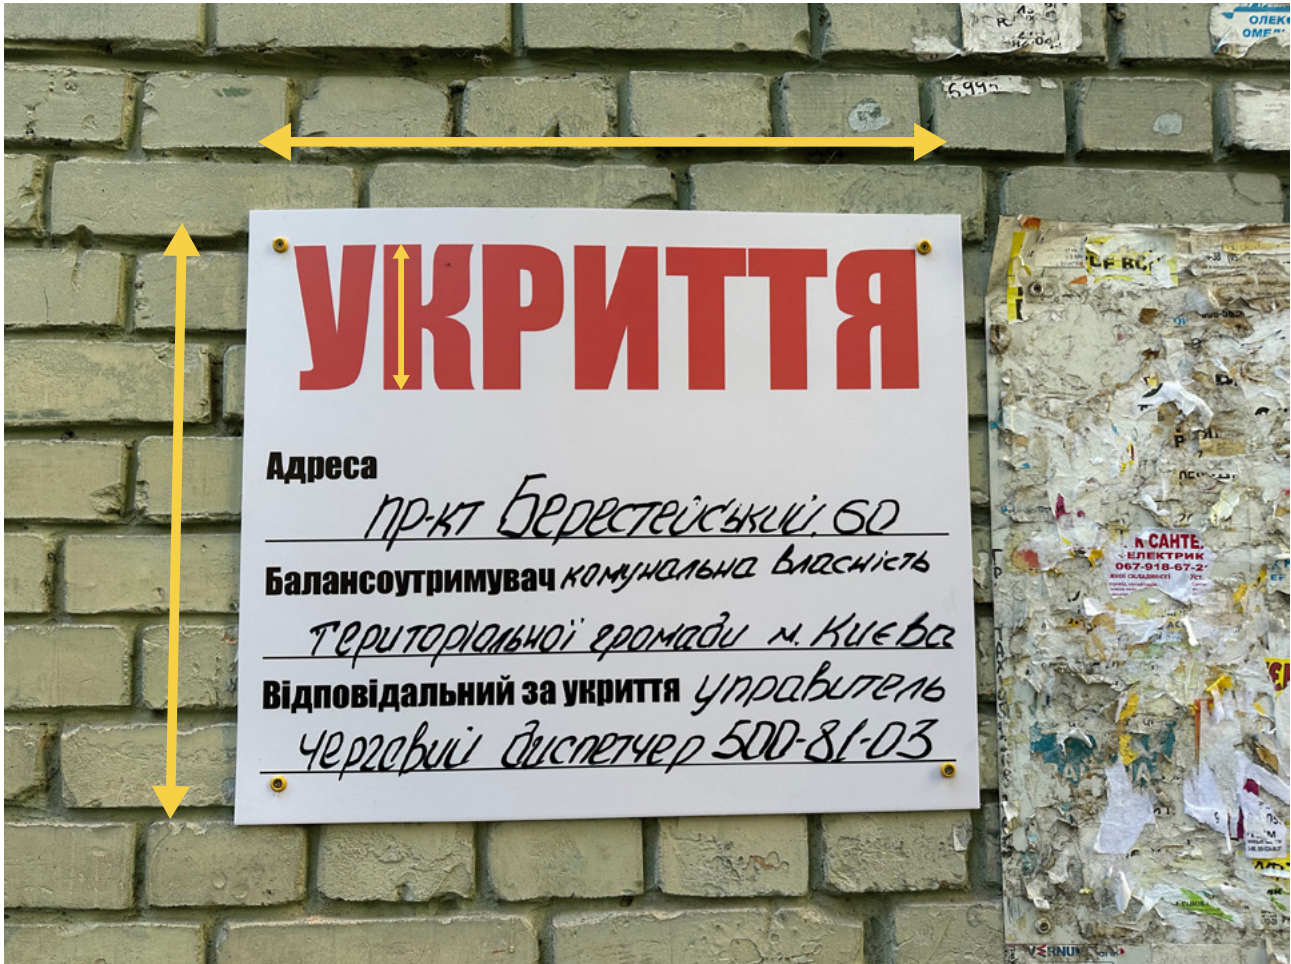 УКРИТТЯ
Адреса
пр-кт Берестейський, 60
Балансоутримувач комунальна власність
територіальної громади м. Києва
Відповідальний за укриття управитель
черговий диспетчер 500-81-03
5994
ОЛЕК
К САНТЕ
ЕЛЕКТРИК
067-918-67-2
VERNU